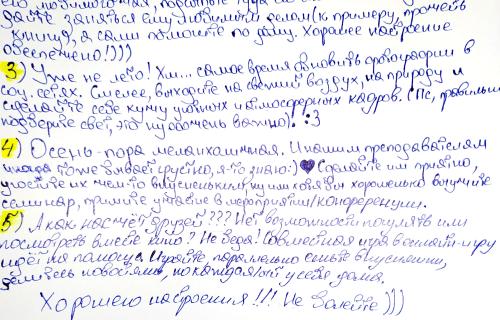 дайте заняться ему любимым делом (к примеру, прочесть
книгу, а сами помогите по дому. Хорошее настроение
обеспечено!)))
3) Уже не лето! Хм... самое время обновить фотографии в
соц. сетях. Смелее, выходите на свежий воздух, на природу и
сделайте себе кучу удачных и атмосферных кадров. (Пс, правильно
подберите свет, это ну ооочень важно). :3
4) Осень-пора меланхоличная. И нашим преподавателям
иногда тоже бывает грустно, я-то знаю:) Сделайте им приятно,
угостите их чем-то вкусненьким, ну или говоря хорошенько выучите
семинар, примите участие в мероприятии/конференции.
5) А как насчёт друзей??? Нет возможности погулять или
посмотреть вместе кино? Не беда! Совместная игра в онлайн-игру
идёт на помощь. Играйте, параллельно ешьте вкусняшки,
делитесь новостями, но каждый у себя дома.
Хорошего настроения!!! Не болейте)))